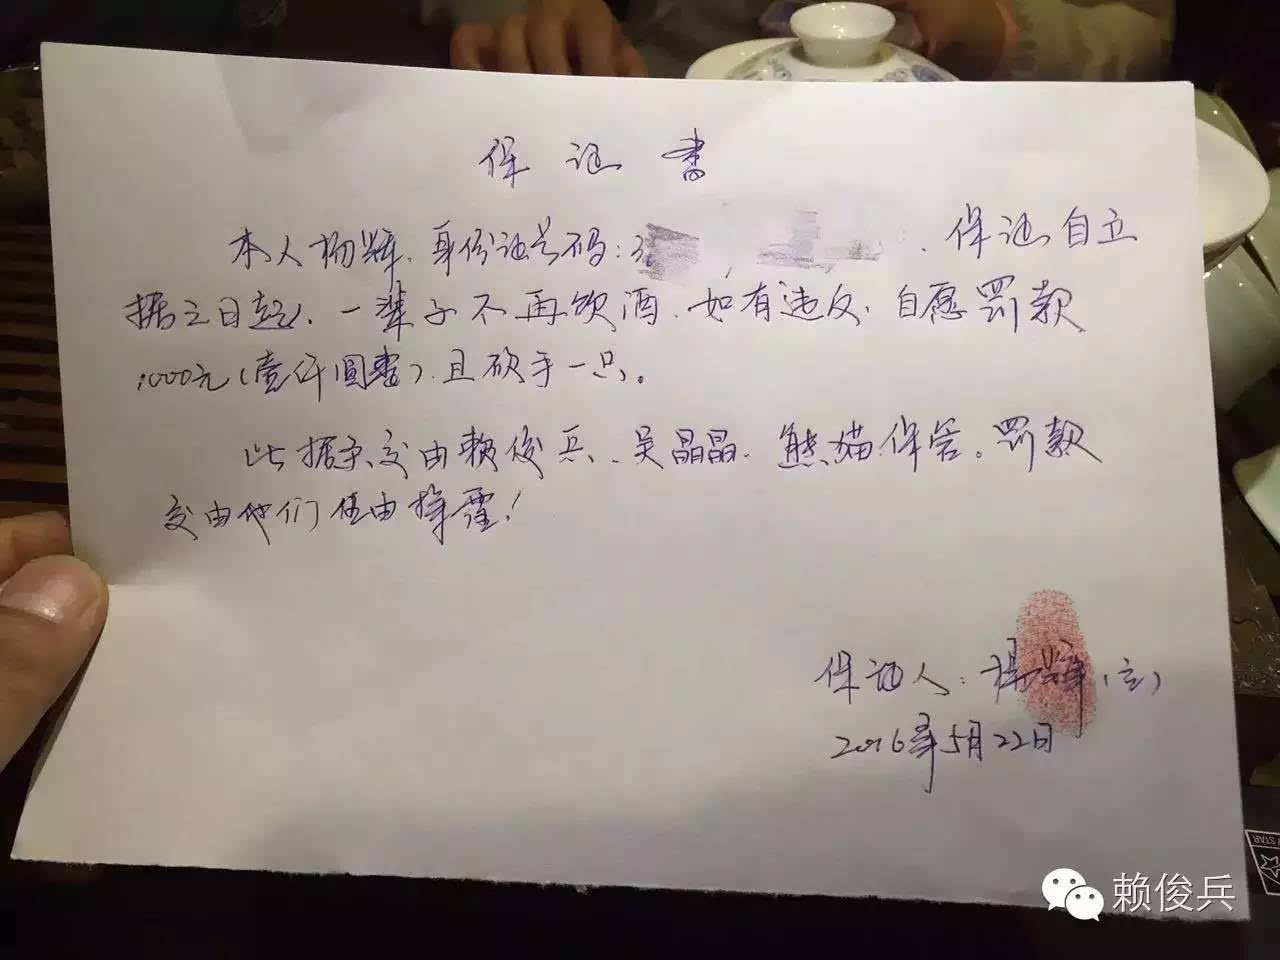 保证书
本人杨辉.身份证号码:3 .保证自立
据之日起、一辈子不再饮酒.如有违反.自愿罚款
1000元(壹仟圆整).且砍手一只。
此据交由赖俊兵、吴晶晶.熊猫保管。罚款
交由他们任由挥霍!
保证人:杨辉(立)
2016年5月22日
赖俊兵
STAR